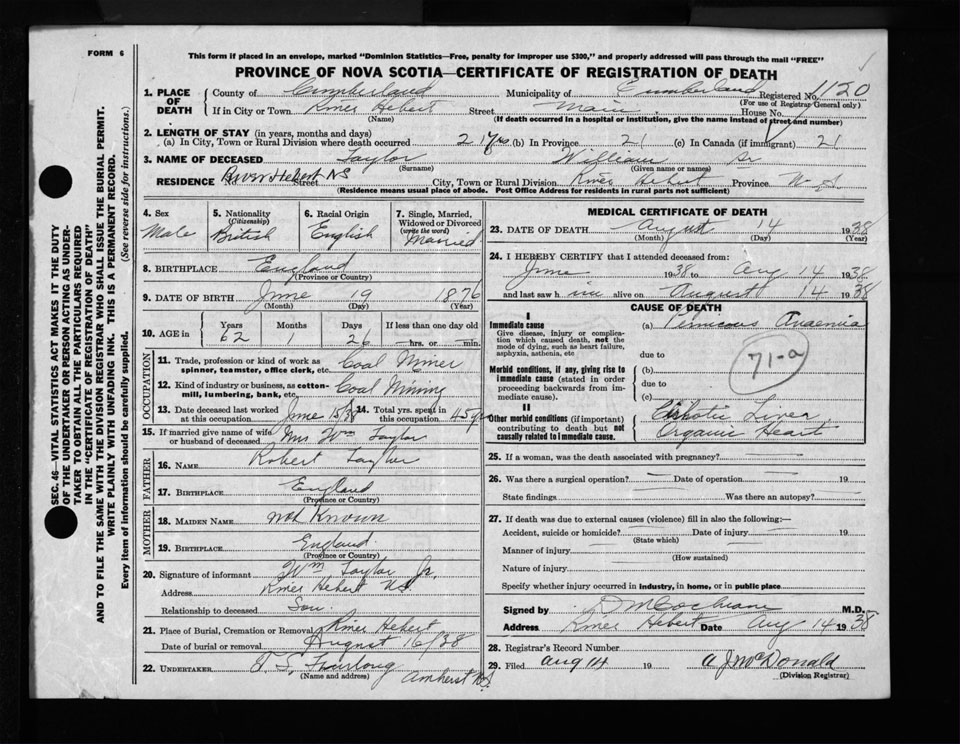 FORM 6
This form if placed in an envelope, marked "Dominion Statistics—Free, penalty for improper use $300," and properly addressed will pass through the mail "FREE"
PROVINCE OF NOVA SCOTIA—CERTIFICATE OF REGISTRATION OF DEATH
1. PLACE OF DEATH County of Cumberland Municipality of Cumberland Registered No. 1120
(For use of Registrar General only)
If in City or Town River Hebert Street Main House No.
(Name) (If death occurred in a hospital or institution, give the name instead of street and number)
2. LENGTH OF STAY (in years, months and days)
(a) In City, Town or Rural Division where death occurred 21 yrs (b) In Province 21 (c) In Canada (if immigrant) 21
3. NAME OF DECEASED Taylor William Sr
(Surname) (Given name or names)
RESIDENCE No. River Hebert NS Street City, Town or Rural Division River Hebert Province N.S.
(Residence means usual place of abode. Post Office Address for residents in rural parts not sufficient)
4. Sex Male
5. Nationality (Citizenship) British
6. Racial Origin English
7. Single, Married, Widowed or Divorced (write the word) Married
8. BIRTHPLACE England
(Province or Country)
9. DATE OF BIRTH June 19 1876
(Month) (Day) (Year)
10. AGE in Years 62 Months 1 Days 26 If less than one day old hrs. or min.
OCCUPATION
11. Trade, profession or kind of work as spinner, teamster, office clerk, etc. Coal Miner
12. Kind of industry or business, as cotton-mill, lumbering, bank, etc. Coal Mining
13. Date deceased last worked at this occupation June 15/38 14. Total yrs. spent in this occupation 45 yrs
15. If married give name of wife or husband of deceased Mrs Wm Taylor
FATHER
16. NAME Robert Taylor
17. BIRTHPLACE England
(Province or Country)
MOTHER
18. MAIDEN NAME not Known
19. BIRTHPLACE England
(Province or Country)
20. Signature of informant Wm Taylor Jr.
Address River Hebert N.S.
Relationship to deceased Son
21. Place of Burial, Cremation or Removal River Hebert
Date of burial or removal August 16/38
22. UNDERTAKER T. S. Furlong
(Name and address) Amherst N.S.
MEDICAL CERTIFICATE OF DEATH
23. DATE OF DEATH August 14 1938
(Month) (Day) (Year)
24. I HEREBY CERTIFY that I attended deceased from:
June 1938 to Aug 14 1938
and last saw h im alive on August 14 1938
CAUSE OF DEATH
I
Immediate cause (a) Pernicous Anaemia
Give disease, injury or complication which caused death, not the mode of dying, such as heart failure, asphyxia, asthenia, etc
due to
71-a
Morbid conditions, if any, giving rise to immediate cause (stated in order proceeding backwards from immediate cause). (b)
due to
(c)
II
Other morbid conditions (if important) contributing to death but not causally related to immediate cause. Cirhotic Liver
Organic Heart
25. If a woman, was the death associated with pregnancy?
26. Was there a surgical operation? Date of operation 19
State findings Was there an autopsy?
27. If death was due to external causes (violence) fill in also the following:—
Accident, suicide or homicide? Date of injury 19
(State which)
Manner of injury
(How sustained)
Nature of injury
Specify whether injury occurred in industry, in home, or in public place
Signed by D M Cochrane M.D.
Address River Hebert Date Aug 14 1938
28. Registrar's Record Number
29. Filed Aug 14 19 A J McDonald
(Division Registrar)
SEC. 46—VITAL STATISTICS ACT MAKES IT THE DUTY
OF THE UNDERTAKER OR PERSON ACTING AS UNDER-
TAKER TO OBTAIN ALL THE PARTICULARS REQUIRED
IN THE "CERTIFICATE OF REGISTRATION OF DEATH"
AND TO FILE THE SAME WITH THE DIVISION REGISTRAR WHO SHALL ISSUE THE BURIAL PERMIT.
WRITE PLAINLY WITH UNFADING INK. THIS IS A PERMANENT RECORD.
Every item of information should be carefully supplied. (See reverse side for instructions.)